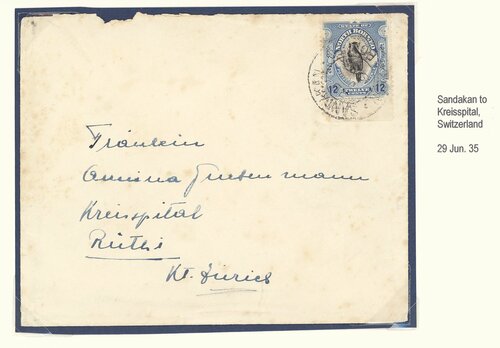 STATE OF
NORTH BORNEO
TWELVE
12 12
Fräulein
Kreisspital
Rüthi
Kt. Zürich
Sandakan to
Kreisspital,
Switzerland
29 Jun. 35